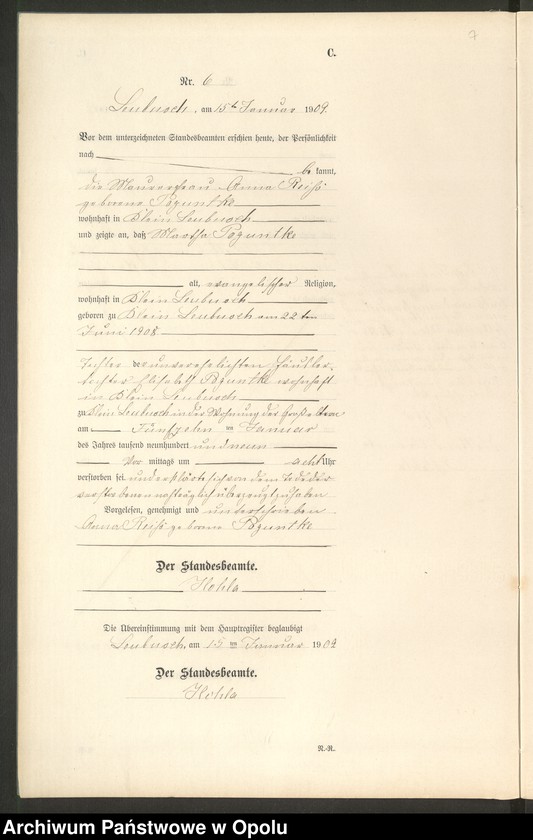 7
C.
Nr. 6
Leubusch, am 15ten Januar 1909.
Vor dem unterzeichneten Standesbeamten erschien heute, der Persönlichkeit
nach be kannt,
die Maurerfrau Anna Reiß
geborene Poguntke
wohnhaft in Klein Leubusch
und zeigte an, daß Martha Poguntke
alt, evangelischer Religion,
wohnhaft in Klein Leubusch
geboren zu Klein Leubusch am 22ten
Juni 1908
Tochter der unverehelichten Häusler-
tochter Elisabeth Poguntke wohnhaft
in Klein Leubusch
zu Klein Leubusch in der Wohnung der Großeltern
am Fünfzehn ten Januar
des Jahres tausend neunhundert und neun
Vor mittags um acht Uhr
verstorben sei und erklärte sich von dem Tode der
Verstorbenen überzeugt zu haben
Vorgelesen, genehmigt und unterschrieben
Anna Reiß geborene Poguntke
Der Standesbeamte.
Die Übereinstimmung mit dem Hauptregister beglaubigt
Leubusch, am 15 ten Januar 1909
Der Standesbeamte.
N.-R.
Archiwum Państwowe w Opolu